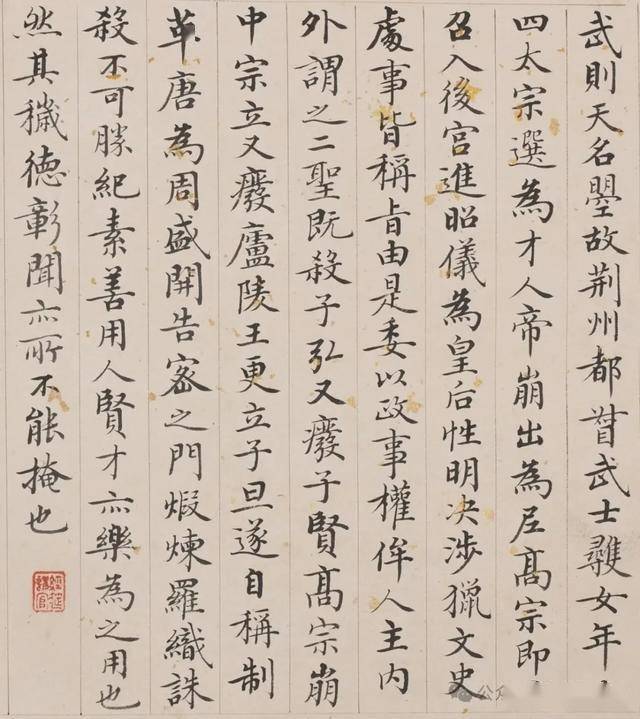 武則天名曌故荆州都督武士彠女年
四太宗選為才人帝崩出為尼髙宗即
召入後宮進昭儀為皇后性明决涉獵文史
處事皆稱旨由是委以政事權侔人主内
外謂之二聖既殺子弘又廢子賢髙宗崩
中宗立又廢廬陵王更立子旦遂自稱制
革唐為周盛開告密之門煆煉羅織誅
殺不可勝紀素善用人賢才亦樂為之用也
然其穢德彰聞亦所不能掩也
經筵講官